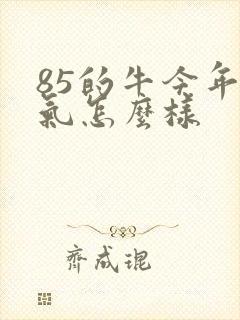 85的牛今年
氣怎麼樣
齊成琨